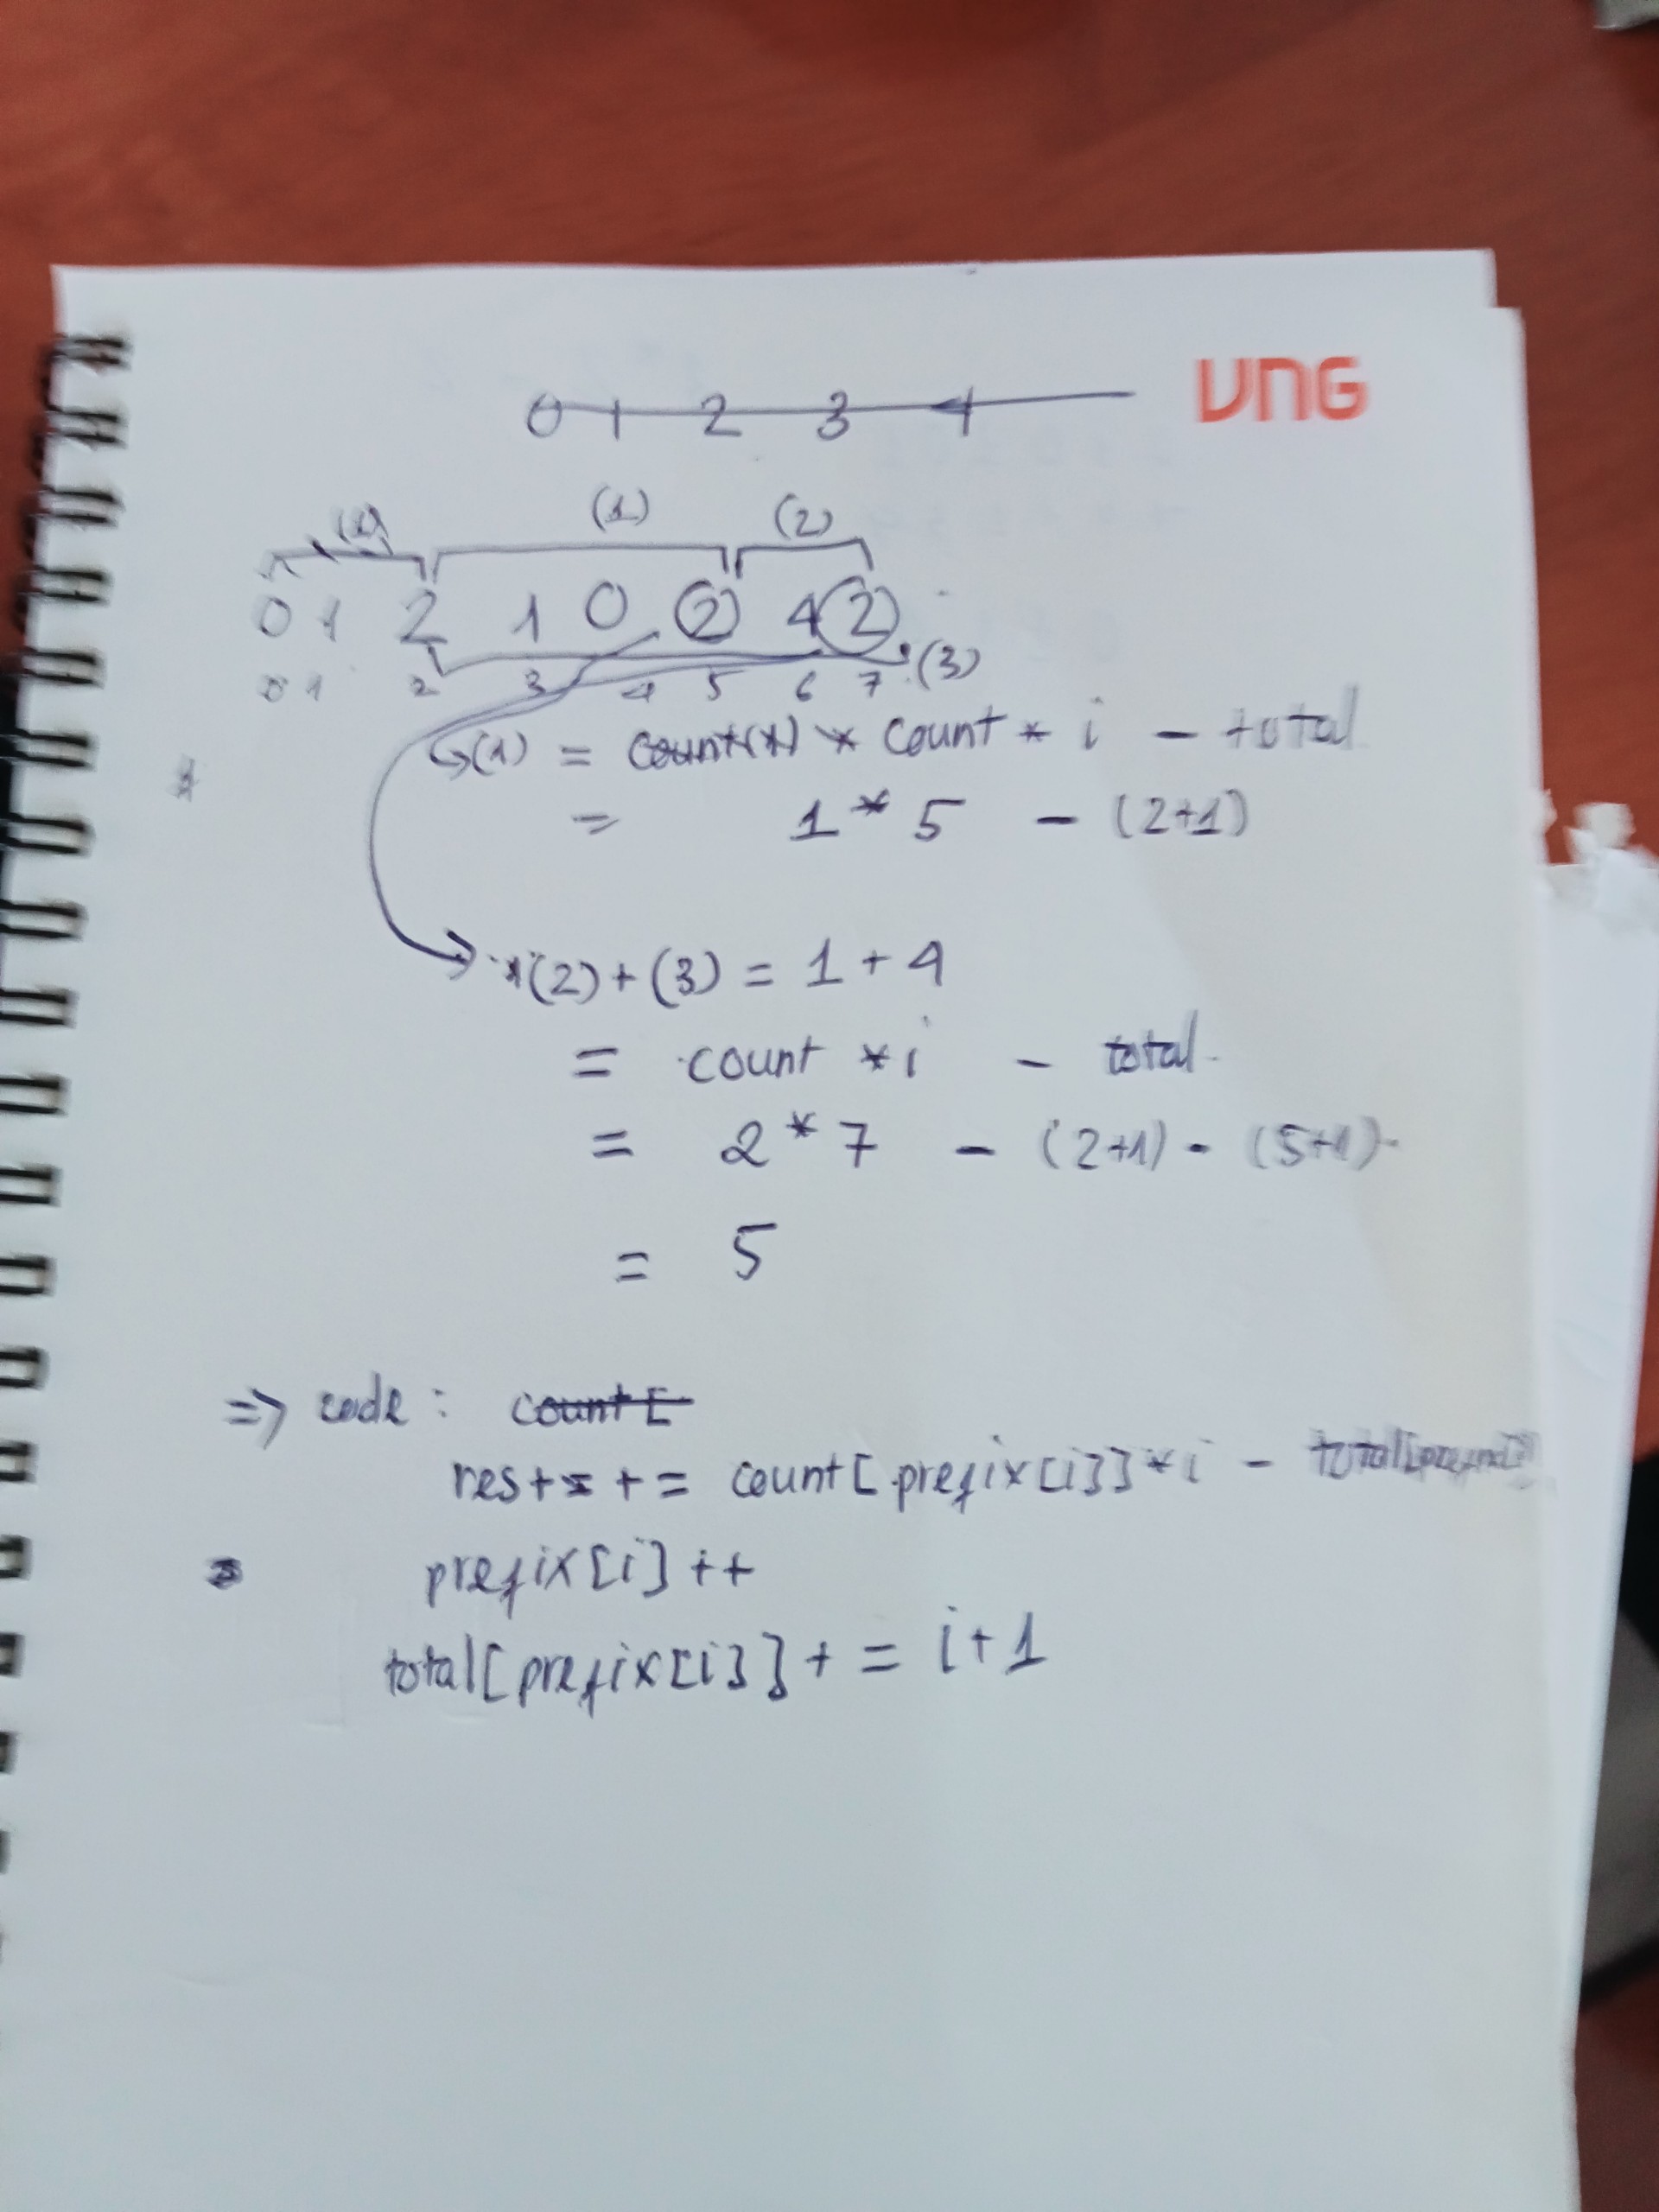 VNG
0 1 2 3 4
(1) (2)
0 1 2 1 0 2 4 2
0 1 2 3 4 5 6 7 (3)
(1) = count(1) * count * i - total
= 1 * 5 - (2+1)
(2) + (3) = 1 + 4
= count * i - total
= 2 * 7 - (2+1) - (5+1)
= 5
=> code : count[
res += += count[prefix[i]] * i - total[prefix[i]]
prefix[i] ++
total[prefix[i]] += i+1